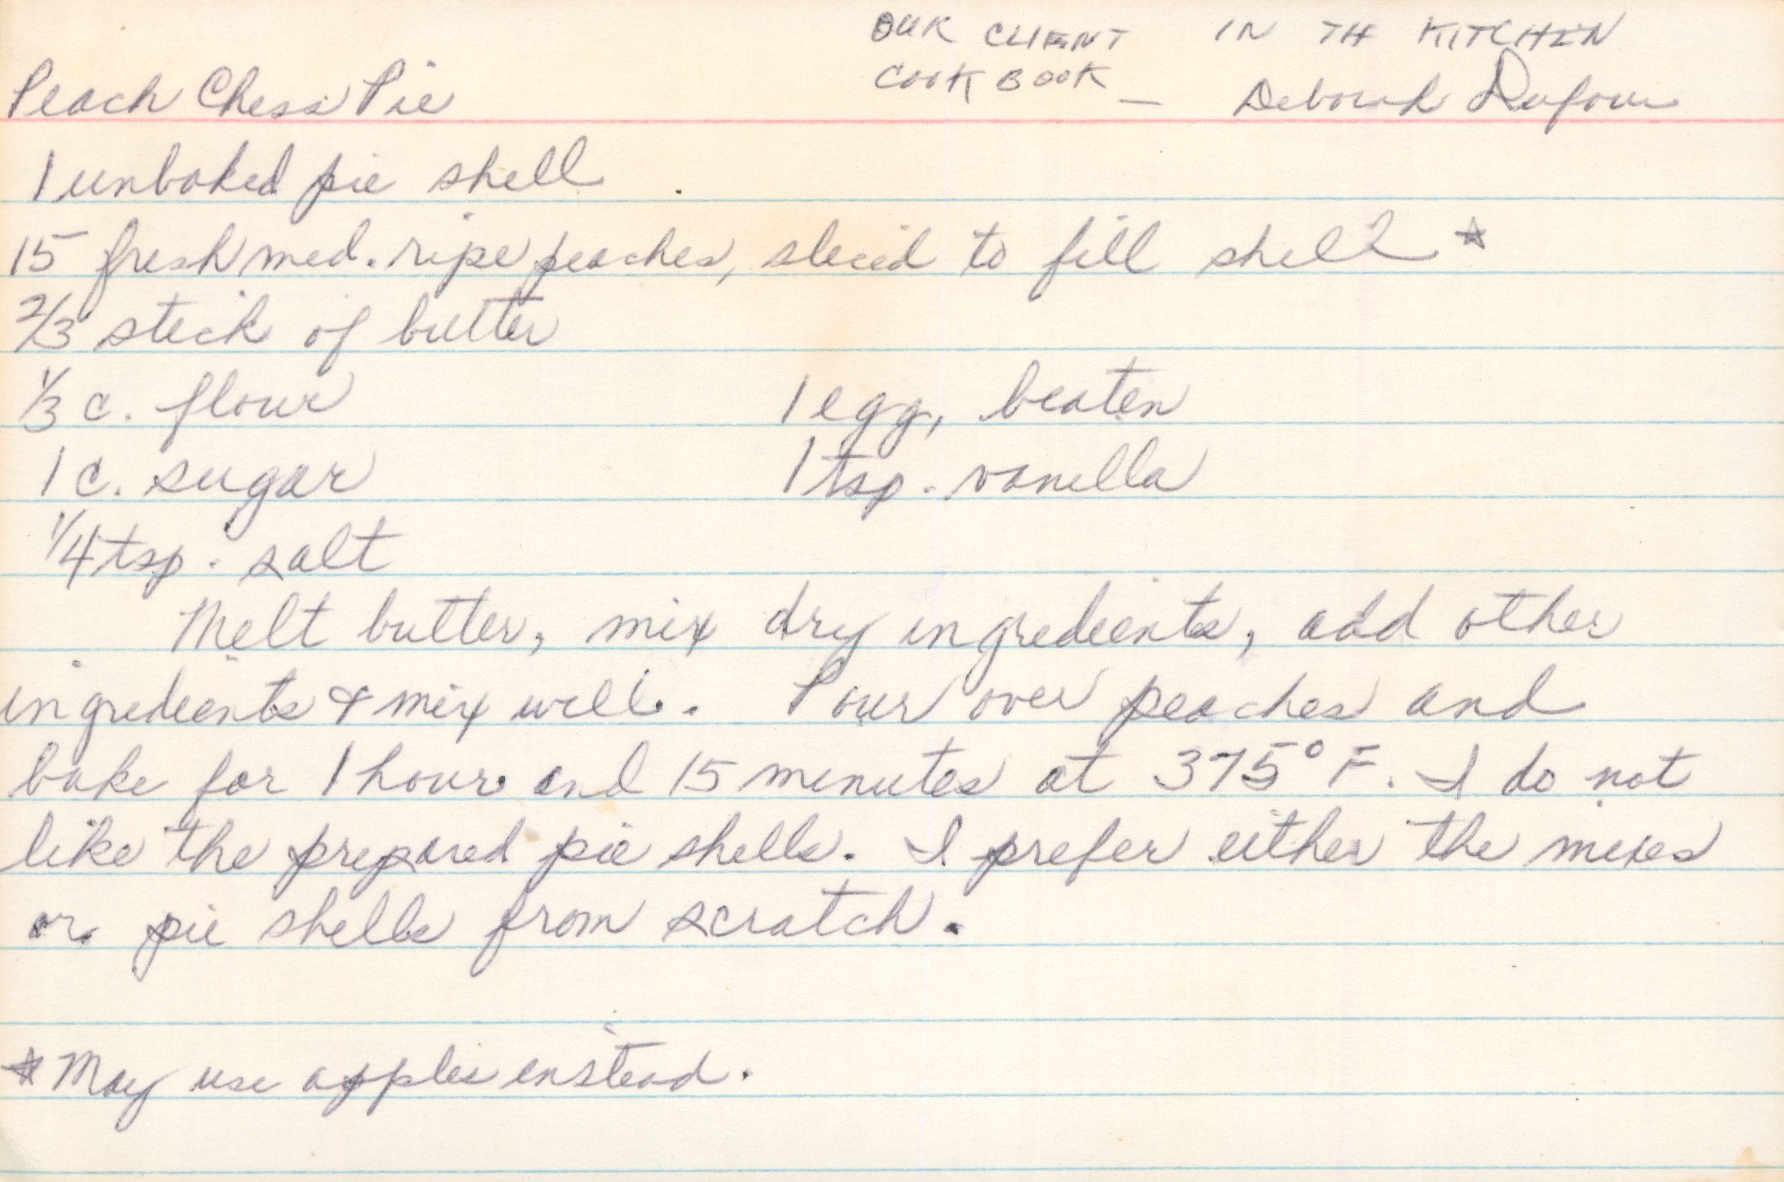 OUR CLIENT IN TH KITCHEN
COOK BOOK -
Peach Chess Pie Deborah Dufour
1 unbaked pie shell
15 fresh med. ripe peaches, sliced to fill shell *
2/3 stick of butter
1/3 c. flour 1 egg, beaten
1 c. sugar 1 tsp. vanilla
1/4 tsp. salt
Melt butter, mix dry ingredients, add other
ingredients & mix well. Pour over peaches and
bake for 1 hour and 15 minutes at 375° F. I do not
like the prepared pie shells. I prefer either the mixes
or pie shells from scratch.
* May use apples instead.